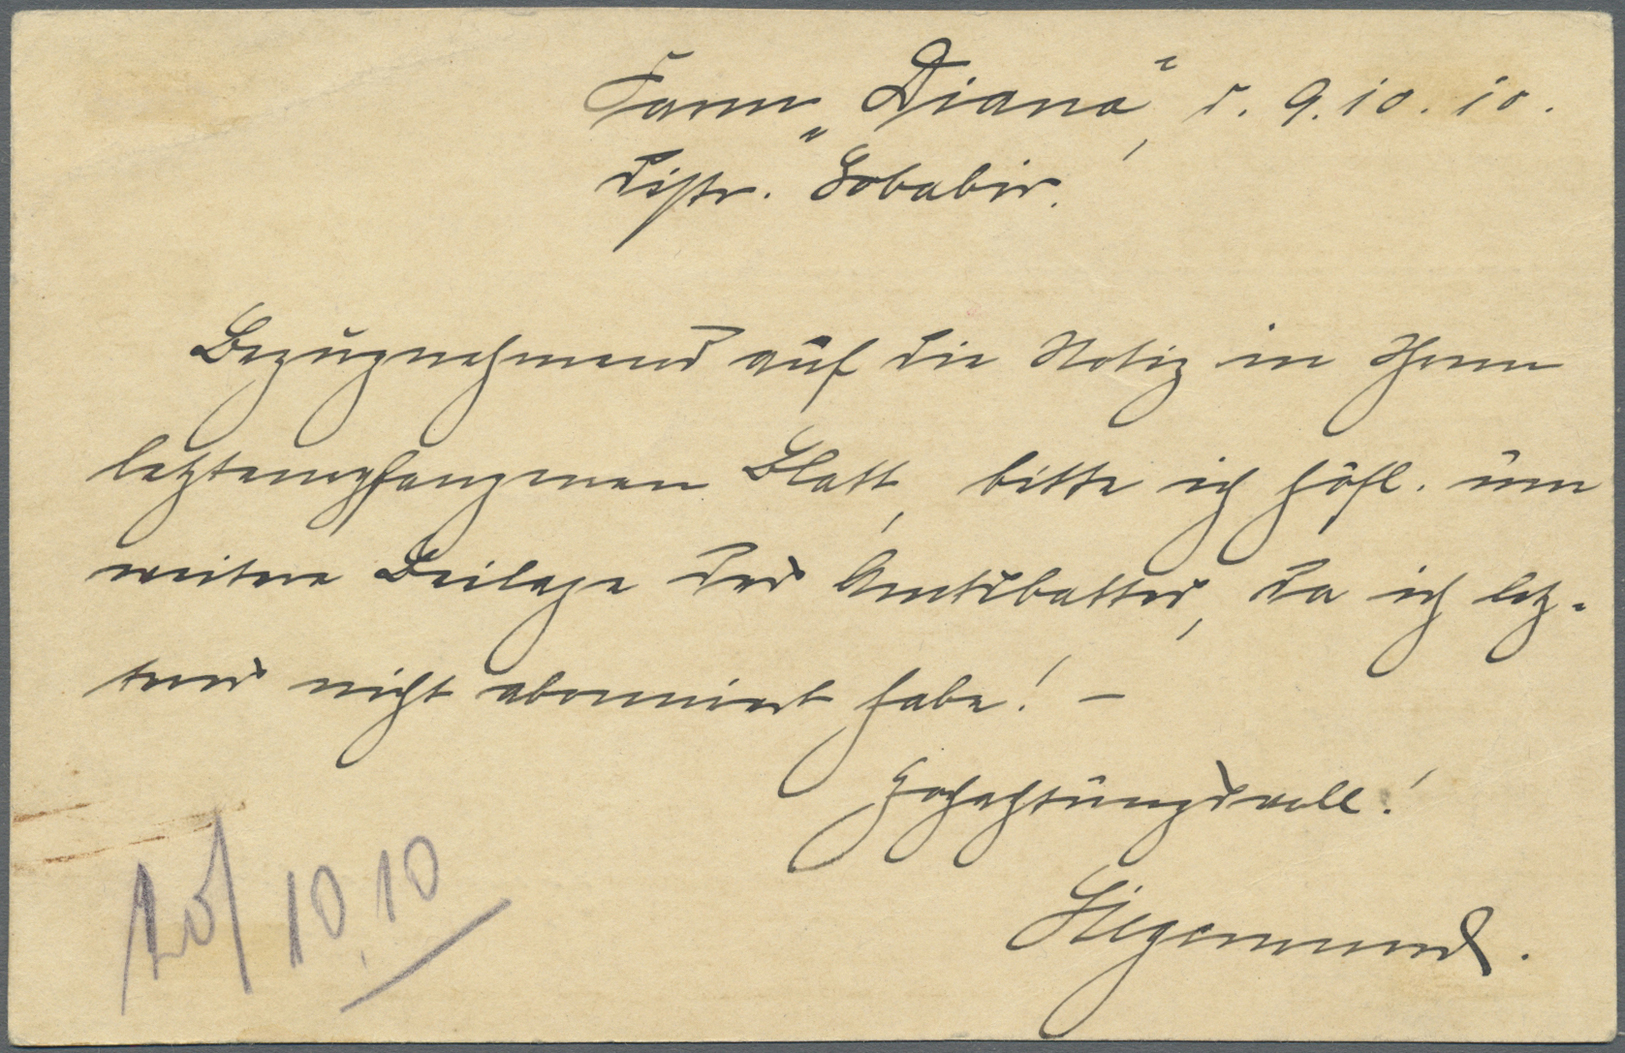 Farm „Diana“, d. 9.10.10.
Distr. Gobabis.
Bezugnehmend auf die Notiz in Ihrem
letztempfangenen Blatt, bitte ich höfl. um
weitere Beilage des Amtsbattes, da ich letz-
teres nicht abonniert habe! –
Hochachtungsvoll!
Siegesmund.
20/10.10